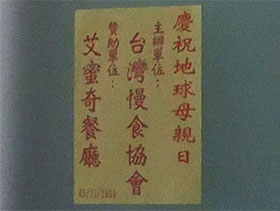 慶祝地球母親日
主辦單位：
台灣慢食協會
贊助單位：
艾蜜奇餐廳